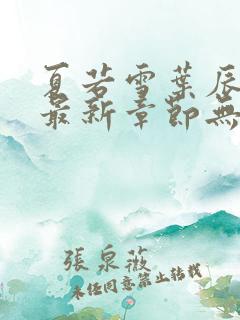 夏若雪葉辰
最新章節無
張泉薇
未經同意禁止轉載